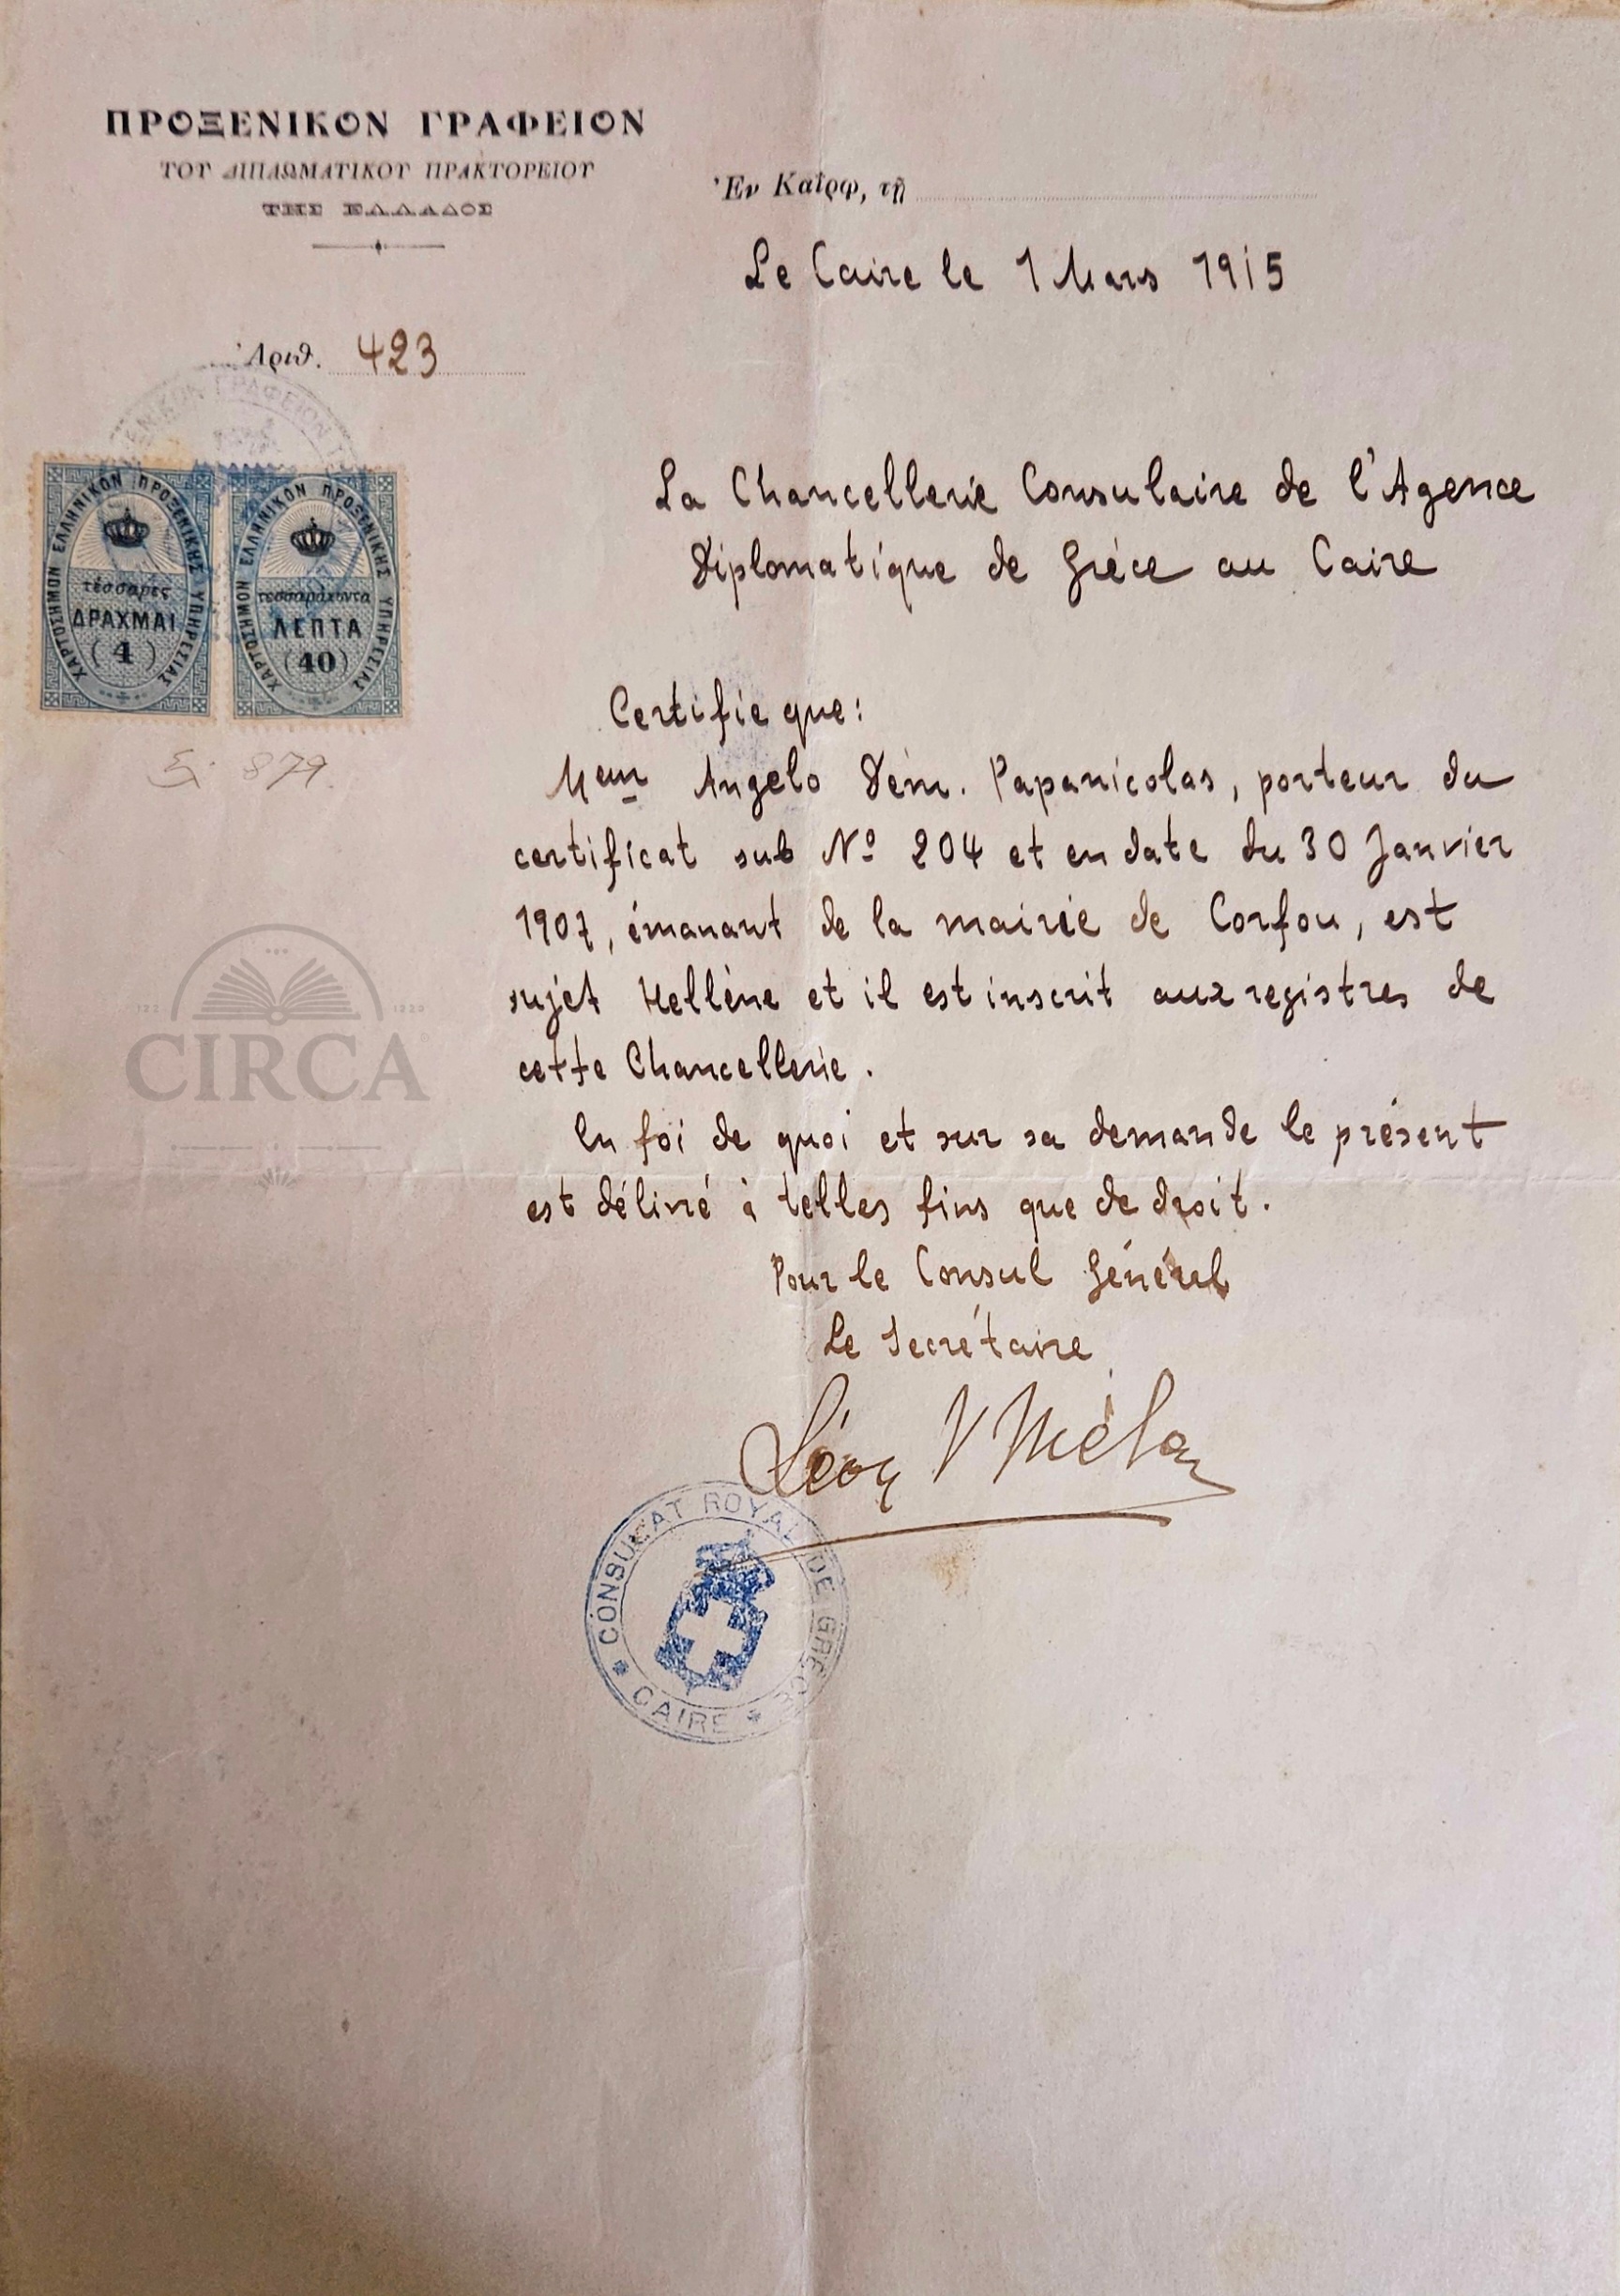 ΠΡΟΞΕΝΙΚΟΝ ΓΡΑΦΕΙΟΝ
ΤΟΥ ΔΙΠΛΩΜΑΤΙΚΟΥ ΠΡΑΚΤΟΡΕΙΟΥ
ΤΗΣ ΕΛΛΑΔΟΣ
Ἐν Καΐρῳ, τῇ
Le Caire le 1 Mars 1915
Ἀριθ. 423
ΓΡΑΦΕΙΟΝ
ΧΑΡΤΟΣΗΜΟΝ ΕΛΛΗΝΙΚΟΝ ΠΡΟΞΕΝΙΚΗΣ ΥΠΗΡΕΣΙΑΣ
τέσσαρες
ΔΡΑΧΜΑΙ
(4)
ΧΑΡΤΟΣΗΜΟΝ ΕΛΛΗΝΙΚΟΝ ΠΡΟΞΕΝΙΚΗΣ ΥΠΗΡΕΣΙΑΣ
τεσσαράκοντα
ΛΕΠΤΑ
(40)
879
La Chancellerie Consulaire de l'Agence
Diplomatique de Grèce au Caire
Certifie que:
Meur Angelo Dém. Papanicolas, porteur du
certificat sub Nº 204 et en date du 30 Janvier
1907, émanant de la mairie de Corfou, est
sujet Hellène et il est inscrit aux registres de
cette Chancellerie.
En foi de quoi et sur sa demande le présent
est délivré à telles fins que de droit.
Pour le Consul Général
Le Secrétaire
Léon V Méla
CONSULAT ROYAL DE GRECE
* CAIRE *
CIRCA